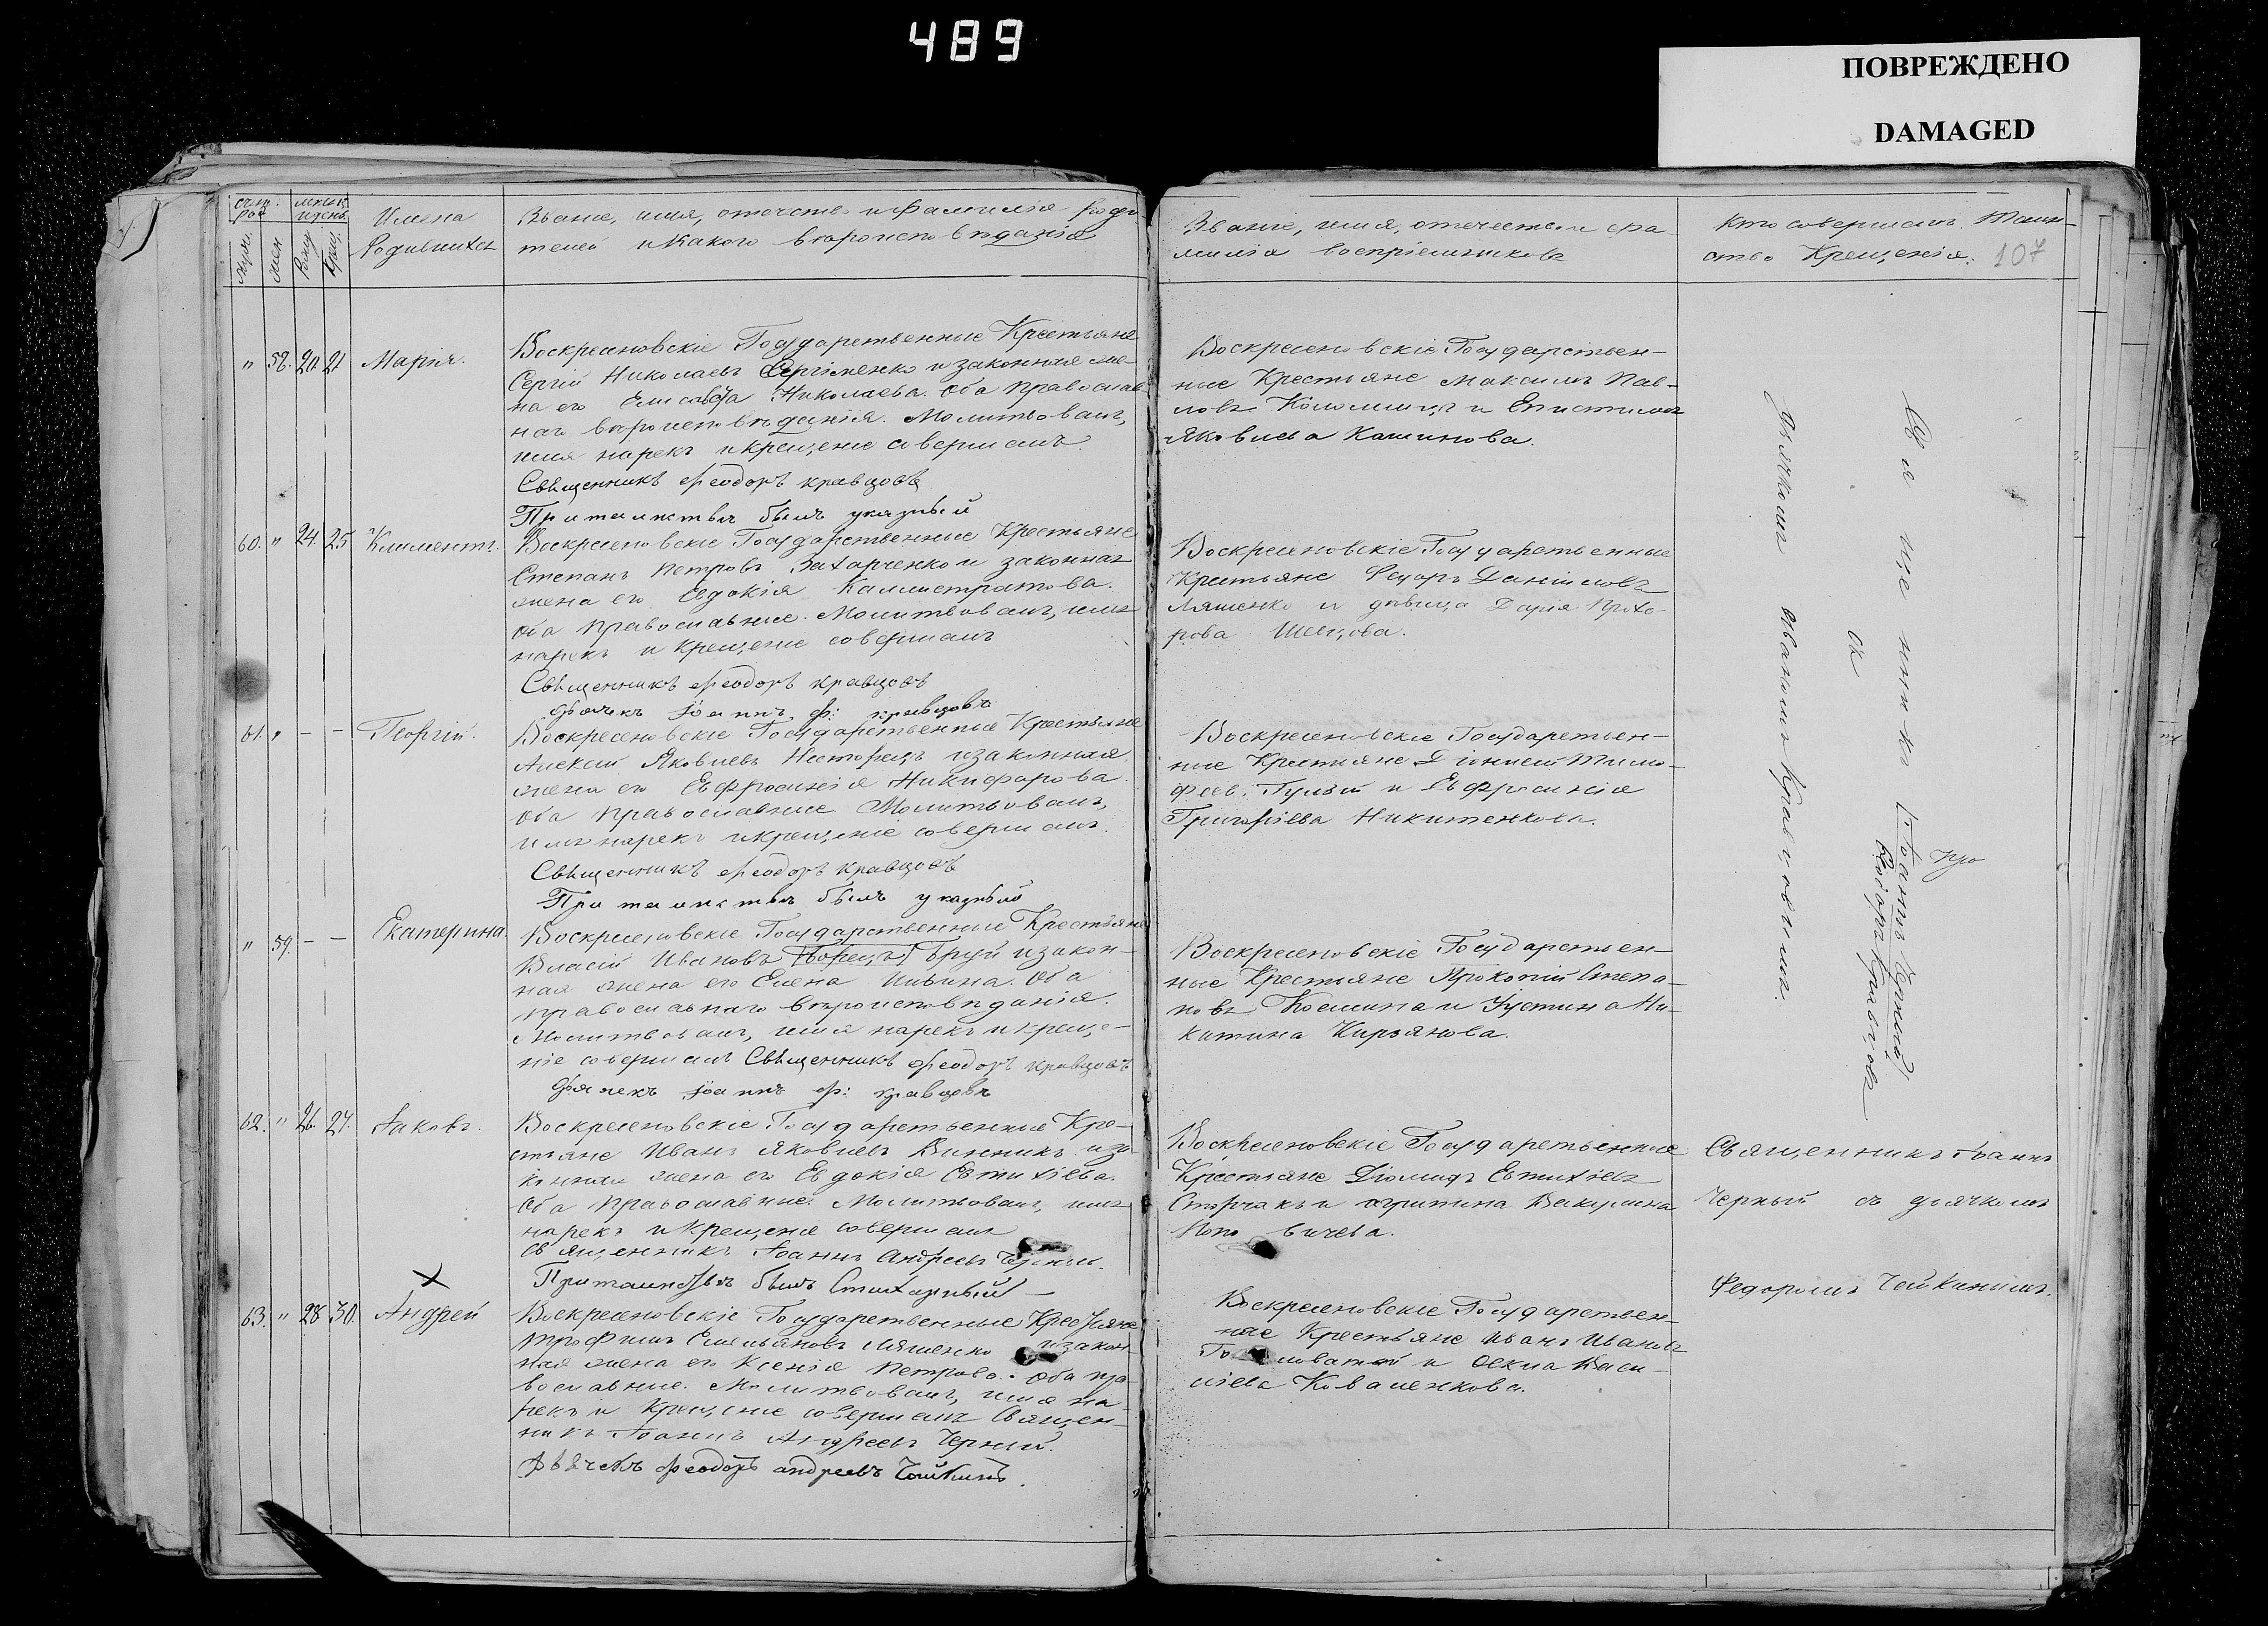 489
ПОВРЕЖДЕНО
DAMAGED
Имена
Родившихся
Званіе, имя, отечество и фамилія роди-
телей и какого вероисповѣданія
Званіе, имя, отечество и фа-
милія воспріемниковъ
Кто совершалъ таин-
ство Крещенія.
107
" 58. 20. 21 Марія.
Воскресеновскіе Государственные Крестьяне
Сергій Николаевъ Сергіменко и законная же-
на его Елисавѣта Николаева. Оба православ-
наго вѣроисповѣданія. Молитвовалъ,
имя нарекъ и крещеніе совершалъ
Священникъ Феодоръ Кравцовъ
При таинствѣ былъ указный
Воскресеновскіе Государствен-
ные Крестьяне Максимъ Пав-
ловъ Коломиецъ и Епистимія
Яковлева Калинова.
60. " 24. 25 Климентъ.
Воскресеновскіе Государственные Крестьяне
Степанъ Петровъ Захарченко и законная
жена его Евдокія Каллистратова.
Оба православные. Молитвовалъ, имя
нарекъ и крещеніе совершалъ
Священникъ Феодоръ Кравцовъ
Дьячекъ Іоаннъ Ф: Кравцовъ
Воскресеновскіе Государственные
Крестьяне Федоръ Даніиловъ
Ляшенко и дѣвица Дарія Прохо-
рова Шевцова.
61. " — — Георгій.
Воскресеновскіе Государственные Крестьяне
Алексѣй Яковлевъ Несторецъ и законная
жена его Евфросинія Никифорова.
Оба православные Молитвовалъ,
имя нарекъ и крещеніе совершалъ.
Священникъ Феодоръ Кравцовъ
При таинствѣ былъ указный
Воскресеновскіе Государствен-
ные Крестьяне Діонисій Тимо-
феев. Гулый и Евфросинія
Григоріева Никитенкова.
" 59. — — Екатерина.
Воскресеновскіе Государственные Крестьяне
Власій Ивановъ Бруй и закон-
ная жена его Елена Ильина. Оба
православнаго вѣроисповѣданія.
Молитвовалъ, имя нарекъ и креще-
ніе совершалъ Священникъ Феодоръ Кравцовъ
Дьячекъ Іоаннъ Ф: Кравцовъ
Воскресеновскіе Государствен-
ные Крестьяне Прокопій Степа-
новъ Космина и Устина Ни-
китина Кирьянова.
Священникъ Іоаннъ Черный
Про
Феодоръ Кравцовъ
съ
дьячкомъ Иваномъ Кравцовымъ.
62. " 26. 27. Іаковъ.
Воскресеновскіе Государственные Кре-
стьяне Иванъ Яковлевъ Винникъ и за-
конная жена его Евдокія Евтихіева.
Оба православные. Молитвовалъ, имя
нарекъ и крещеніе совершалъ
Священникъ Іоаннъ Андреевъ Черный.
При таинствѣ былъ Стихарный —
Воскресеновскіе Государственные
Крестьяне Діомидъ Евтихіевъ
Сторчакъ и Агрипина Вакулина
Попо вичева.
Священникъ Іоаннъ
Черный съ дьячкомъ
Федоромъ Чайкинымъ.
63. " 28 30. Андрей
Воскресеновскіе Государственные Крестьяне
Трофимъ Емельяновъ Ляшенко и закон-
ная жена его Ксенія Петрова. Оба пра-
вославные. Молитвовалъ, имя на-
рекъ и крещеніе совершалъ Священ-
никъ Іоаннъ Андреевъ Черный.
Дьячекъ Феодоръ Андреевъ Чайкинъ.
Воскресеновскіе Государствен-
ные Крестьяне Иванъ Ивановъ
и Оекла Васи-
ліева Коваленкова.